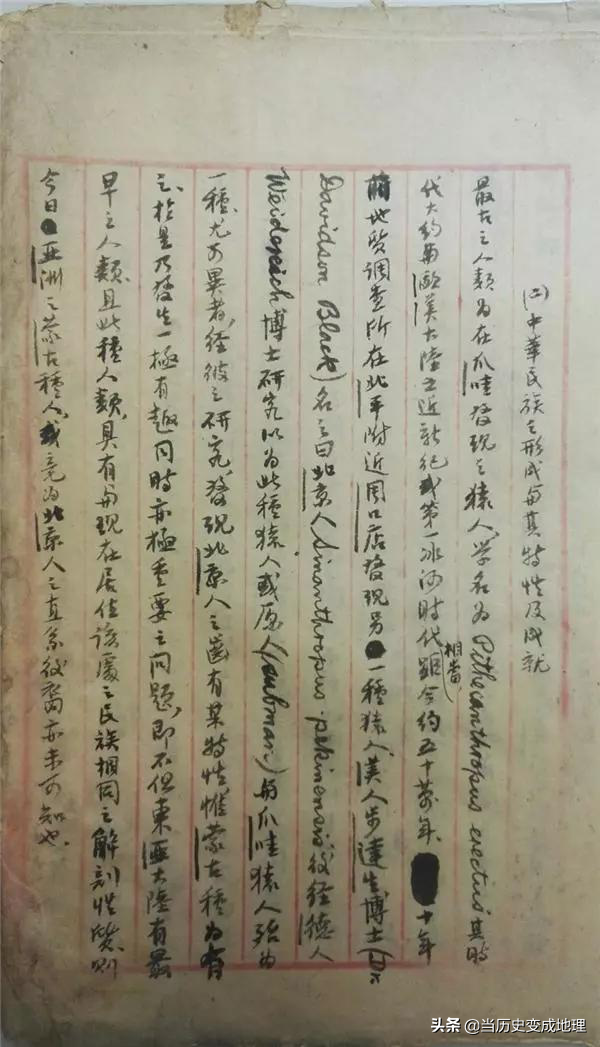 (二)中華民族之形成與其特性及成就
最古之人類為在爪哇發現之猿人,學名為Pithecanthropus erectus,其時
代大約與歐漢大陸之近新紀或第一冰河時代相當,距今約五十萬年。十年
前地質調查所在北平附近周口店發現另一種猿人,英人步達生博士(Dr
Davidson Black)名之曰北京人Sinanthropus pekinensis,後經德人
Weidenreich博士研究以為此種猿人或原人(aubman)與爪哇猿人殆為
一種,尤可異者,經彼之研究,發現北京人之齒有某特性惟蒙古種為有
之,於是乃發生一極有趣同時亦極重要之問題,即不但東亞大陸有最
早之人類,且此種人類,具有與現在居住該處之民族相同之解剖性質,則
今日亞洲之蒙古種人,或竟為北京人之直系後裔亦未可知也。
头条 @当历史变成地理